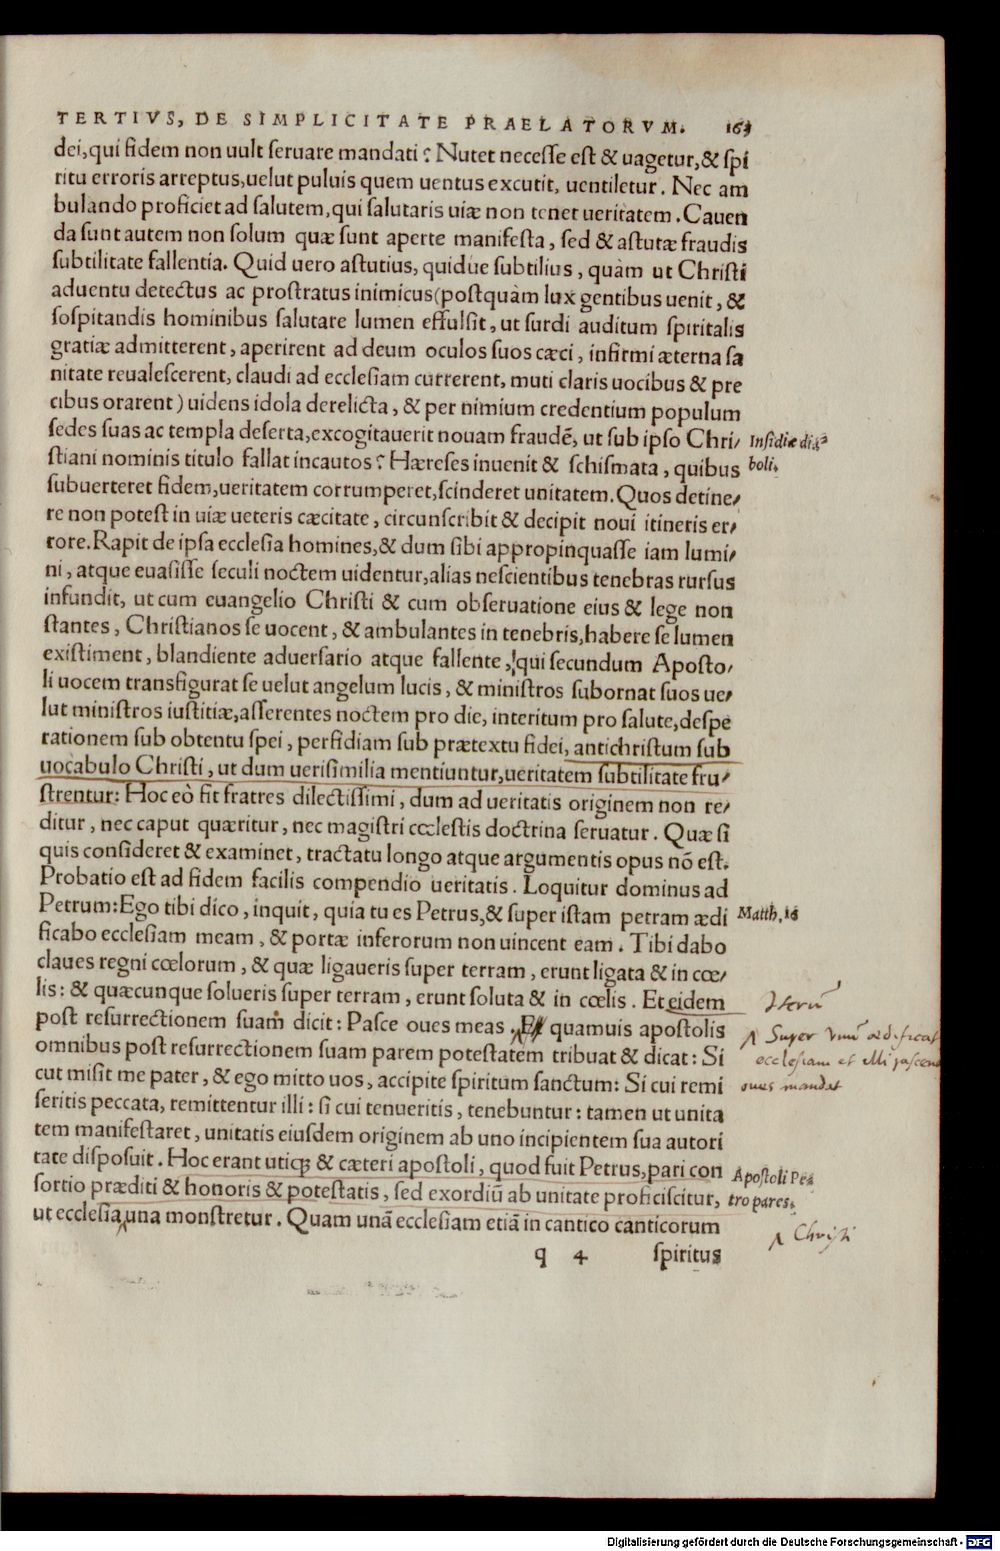 TERTIVS, DE SIMPLICITATE PRAELATORVM. 163
dei, qui fidem non uult seruare mandati? Nutet necesse est & uagetur, & spi
ritu erroris arreptus, uelut puluis quem uentus excutit, uentiletur. Nec am
bulando proficiet ad salutem, qui salutaris uiæ non tenet ueritatem. Cauen
da sunt autem non solum quæ sunt aperte manifesta, sed & astutæ fraudis
subtilitate fallentia. Quid uero astutius, quidue subtilius, quàm ut Christi
aduentu detectus ac prostratus inimicus (postquàm lux gentibus uenit, &
sospitandis hominibus salutare lumen effulsit, ut surdi auditum spiritalis
gratiæ admitterent, aperirent ad deum oculos suos cæci, infirmi æterna sa
nitate reualescerent, claudi ad ecclesiam currerent, muti claris uocibus & pre
cibus orarent) uidens idola derelicta, & per nimium credentium populum
sedes suas ac templa deserta, excogitauerit nouam fraudẽ, ut sub ipso Chri/
Insidiæ dia
stiani nominis titulo fallat incautos? Hæreses inuenit & schismata, quibus
boli.
subuerteret fidem, ueritatem corrumperet, scinderet unitatem. Quos detine/
re non potest in uiæ ueteris cæcitate, circunscribit & decipit noui itineris er/
rore. Rapit de ipsa ecclesia homines, & dum sibi appropinquasse iam lumi/
ni, atque euasisse seculi noctem uidentur, alias nescientibus tenebras rursus
infundit, ut cum euangelio Christi & cum obseruatione eius & lege non
stantes, Christianos se uocent, & ambulantes in tenebris, habere se lumen
existiment, blandiente aduersario atque fallente, qui secundum Aposto/
li uocem transfigurat se uelut angelum lucis, & ministros subornat suos ue/
lut ministros iustitiæ, asserentes noctem pro die, interitum pro salute, despe
rationem sub obtentu spei, perfidiam sub prætextu fidei, antichristum sub
uocabulo Christi, ut dum uerisimilia mentiuntur, ueritatem subtilitate fru/
strentur: Hoc eò fit fratres dilectissimi, dum ad ueritatis originem non re/
ditur, nec caput quæritur, nec magistri cœlestis doctrina seruatur. Quæ si
quis consideret & examinet, tractatu longo atque argumentis opus nõ est.
Probatio est ad fidem facilis compendio ueritatis. Loquitur dominus ad
Petrum: Ego tibi dico, inquit, quia tu es Petrus, & super istam petram ædi
Matth. 16
ficabo ecclesiam meam, & portæ inferorum non uincent eam. Tibi dabo
claues regni cœlorum, & quæ ligaueris super terram, erunt ligata & in cœ/
lis: & quæcunque solueris super terram, erunt soluta & in cœlis. Et eidem
Iterũ
post resurrectionem suam dicit: Pasce oues meas. Et quamuis apostolis
Super vnũ ædificat
omnibus post resurrectionem suam parem potestatem tribuat & dicat: Si
ecclesiam et illi pascend
cut misit me pater, & ego mitto uos, accipite spiritum sanctum: Si cui remi
oues mandat
seritis peccata, remittentur illi: si cui tenueritis, tenebuntur: tamen ut unita
tem manifestaret, unitatis eiusdem originem ab uno incipientem sua autori
tate disposuit. Hoc erant utiqꝫ & cæteri apostoli, quod fuit Petrus, pari con
Apostoli Pe
sortio præditi & honoris & potestatis, sed exordiũ ab unitate proficiscitur,
tro pares.
ut ecclesia una monstretur. Quam unã ecclesiam etiã in cantico canticorum
Christi
q 4 spiritus
Digitalisierung gefördert durch die Deutsche Forschungsgemeinschaft - DFG